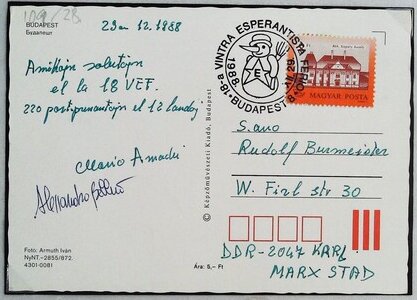 109/28
BUDAPEST
Будапешт
29an 12. 1988
Amikajn salutojn
el la 18 VEF.
220 partoprenantojn el 12 landoj
Mario Amadei
Foto: Armuth Iván
NyNT.–2855/872.
4301-0081
Ára: 5,– Ft
© Képzőművészeti Kiadó, Budapest
18-a VINTRA ESPERANTISTA FERIO
1988
BUDAPEST 8
E
MAGYAR POSTA
S.ano
Rudolf Burmeister
W. Firl str 30
DDR-2047 KARL
MARX STAD